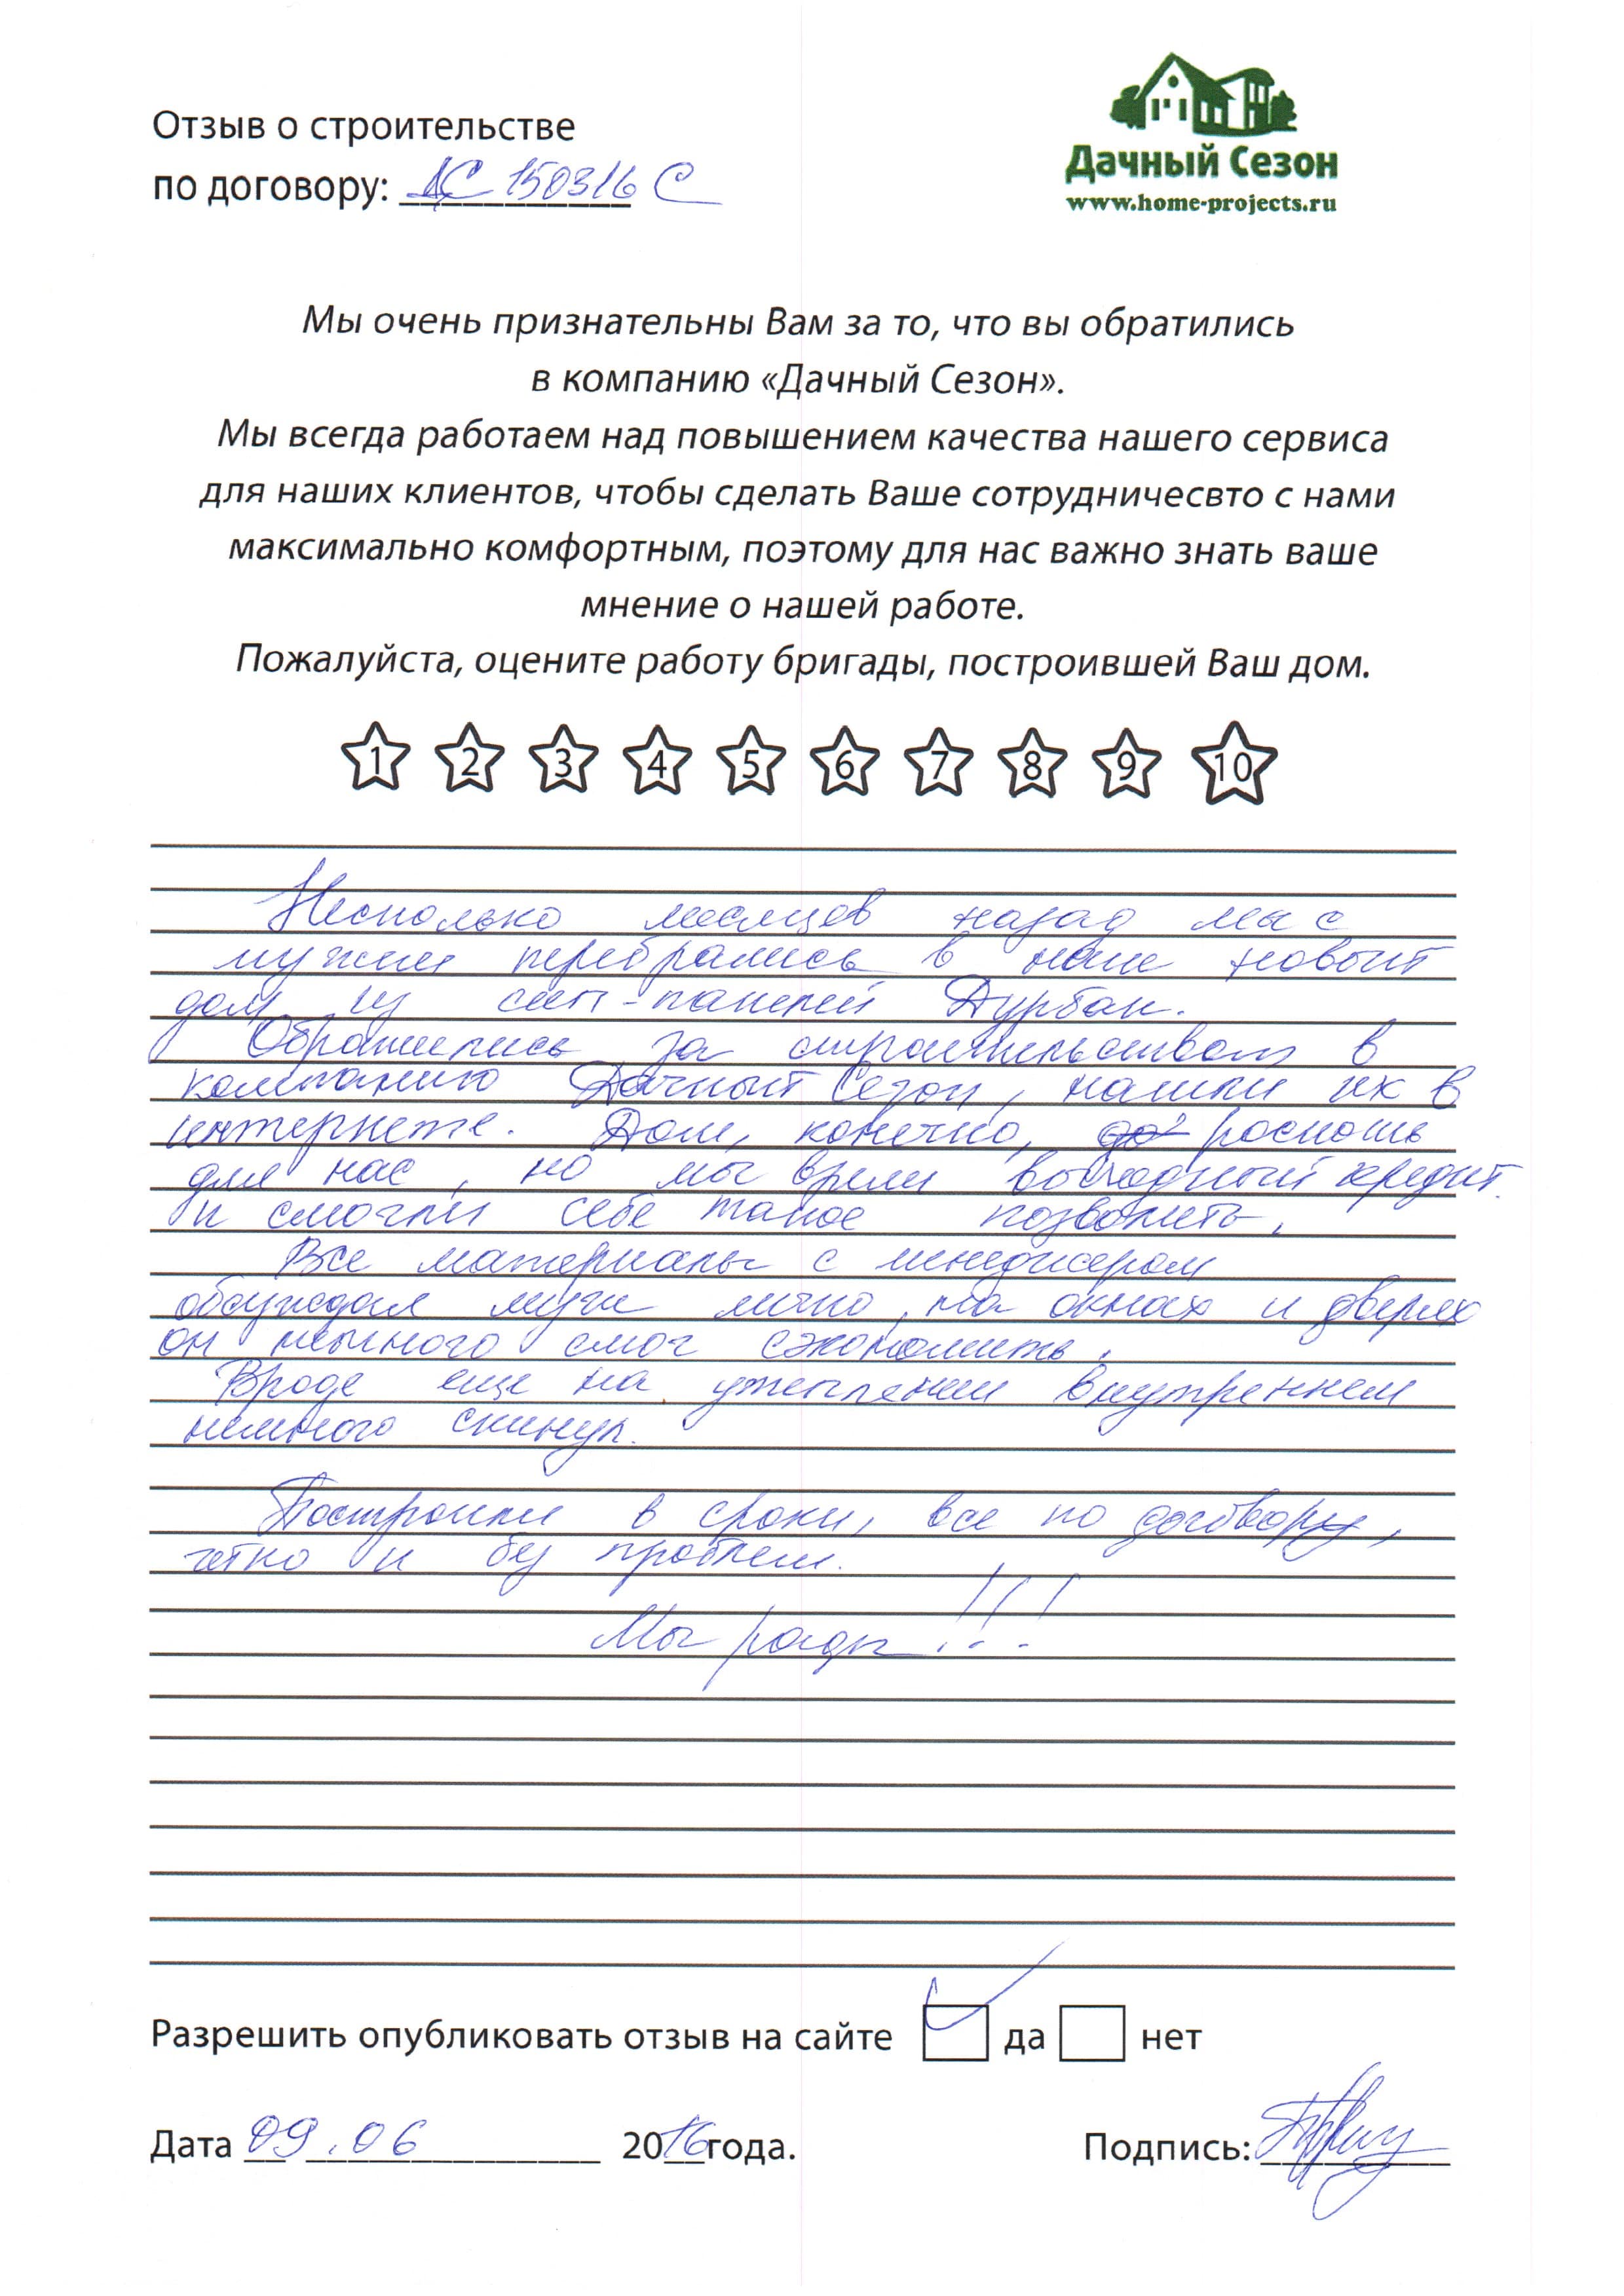 Отзыв о строительстве
по договору: ДС 150316 С
Дачный Сезон
www.home-projects.ru
Мы очень признательны Вам за то, что вы обратились
в компанию «Дачный Сезон».
Мы всегда работаем над повышением качества нашего сервиса
для наших клиентов, чтобы сделать Ваше сотрудничесвто с нами
максимально комфортным, поэтому для нас важно знать ваше
мнение о нашей работе.
Пожалуйста, оцените работу бригады, построившей Ваш дом.
1 2 3 4 5 6 7 8 9 10
Несколько месяцев назад мы с
мужем перебрались в наш новый
дом из сип-панелей Дурбан.
Обратились за строительством в
компанию Дачный Сезон, нашли их в
интернете. Дом, конечно, роскошь
для нас, но мы взяли выгодный кредит
и смогли себе такое позволить.
Все материалы с менеджером
обсуждал муж лично, на окнах и дверях
он немного смог сэкономить.
Вроде еще на утеплении внутреннем
немного скинул.
Построили в сроки, все по договору,
четко и без проблем.
Мы рады!!!
Разрешить опубликовать отзыв на сайте да нет
Дата 09.06 2016 года. Подпись: